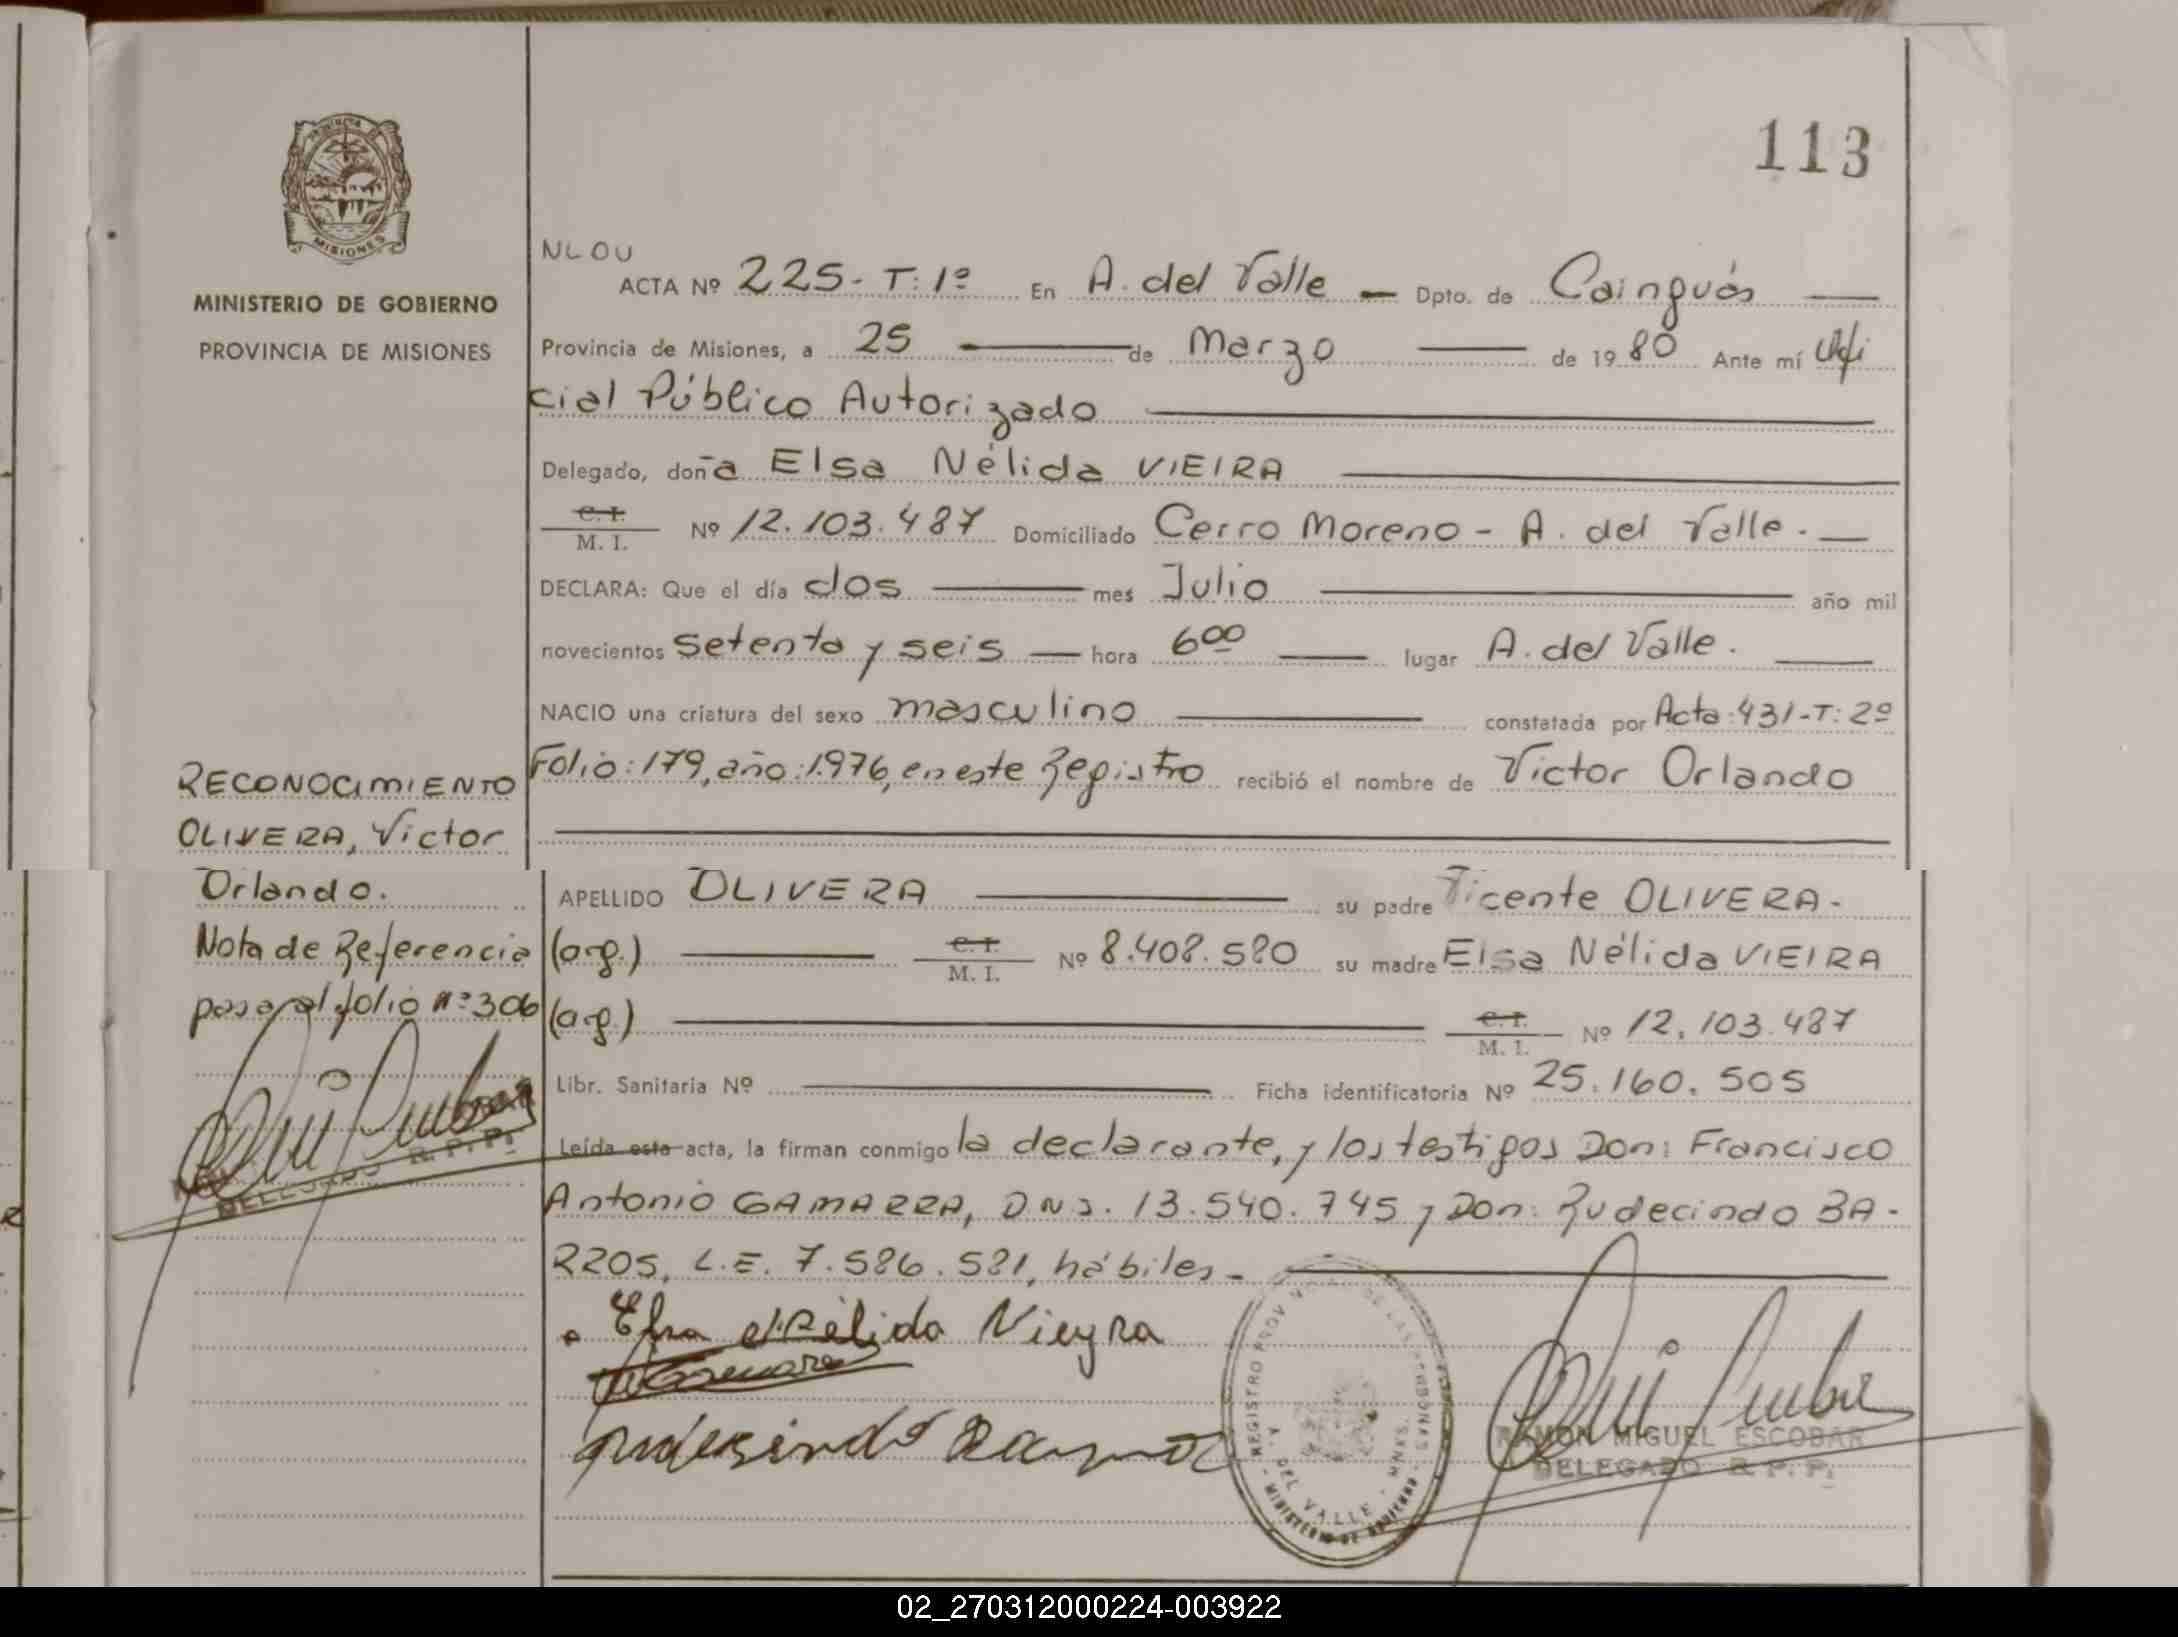 113
PROVINCIA
MISIONES
MINISTERIO DE GOBIERNO
PROVINCIA DE MISIONES
NLOU
ACTA Nº 225- T: 1º En A. del Valle — Dpto. de Cainguás —
Provincia de Misiones, a 25 — de Marzo — de 1980 Ante mí Ofi
cial Público Autorizado —
Delegado, doña Elsa Nélida VIEIRA —
C. I. / M. I. Nº 12.103.487 Domiciliado Cerro Moreno - A. del Valle. —
DECLARA: Que el día dos — mes Julio — año mil
novecientos setenta y seis — hora 600 — lugar A. del Valle. —
NACIO una criatura del sexo masculino — constatada por Acta: 431-T: 2º
Folio: 179, año: 1976, en este Registro recibió el nombre de Victor Orlando
RECONOCIMIENTO
OLIVERA, Victor
Orlando.
Nota de Referencia
pasa al folio nº 306
DELEGADO R. P. P.
APELLIDO OLIVERA — su padre Vicente OLIVERA-
(arg.) — C. I. / M. I. Nº 8.408.580 su madre Elsa Nélida VIEIRA
(arg.) — C. I. / M. I. Nº 12.103.487
Libr. Sanitaria Nº — Ficha identificatoria Nº 25.160.505
Leída esta acta, la firman conmigo la declarante, y los testigos Don: Francisco
Antonio GAMARRA, D.N.I. 13.540.745 y Don: Rudecindo BA-
RROS, L.E. 7.586.581, hábiles. —
Elsa Nélida Vieyra
REGISTRO PROVINCIAL DE LAS PERSONAS
A. DEL VALLE - MNES.
- MINISTERIO DE GOBIERNO -
RAMON MIGUEL ESCOBAR
DELEGADO R. P. P.
02_270312000224-003922